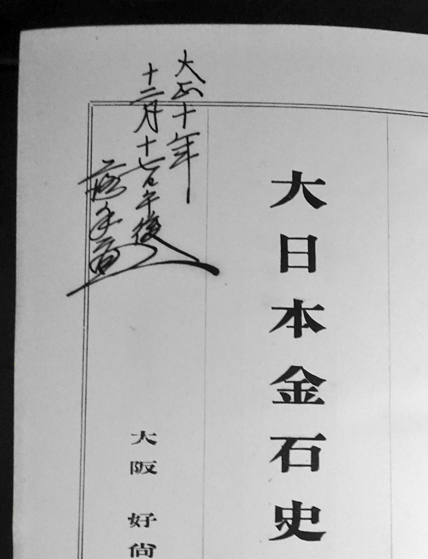 大日本金石史
大正十年
十二月十七日午後
大阪 好尚